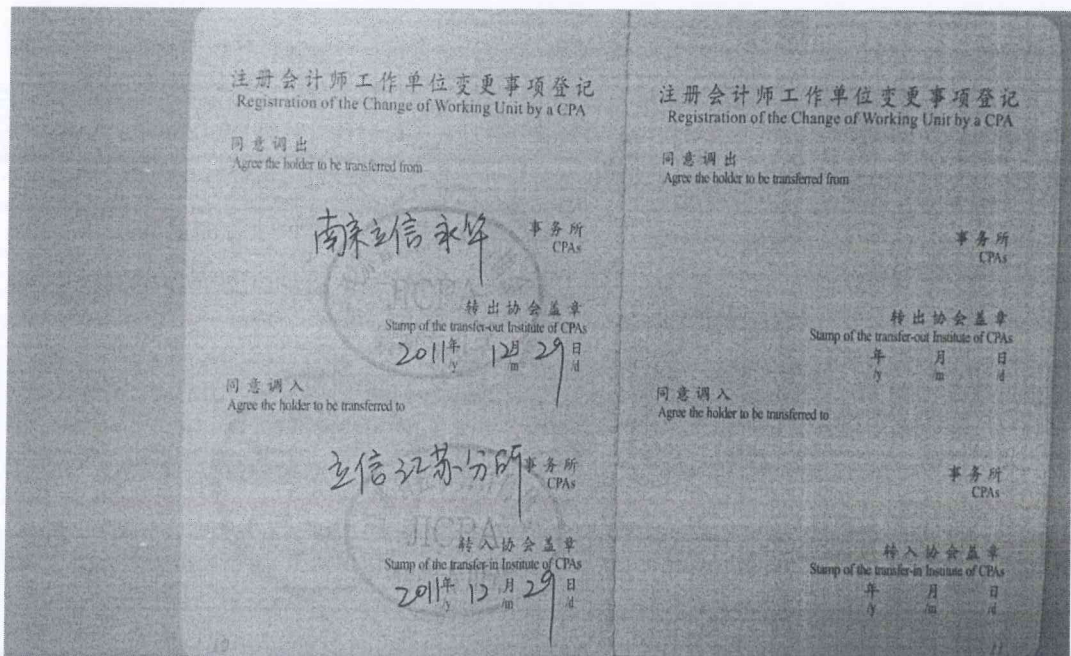 注册会计师工作单位变更事项登记
Registration of the Change of Working Unit by a CPA
同意调出
Agree the holder to be transferred from
南京立信永华 事务所
CPAs
JICPA
转出协会盖章
Stamp of the transfer-out Institute of CPAs
2011年 12月 29日
/y /m /d
同意调入
Agree the holder to be transferred to
立信江苏分所 事务所
CPAs
JICPA
转入协会盖章
Stamp of the transfer-in Institute of CPAs
2011年 12月 29日
/y /m /d
10
注册会计师工作单位变更事项登记
Registration of the Change of Working Unit by a CPA
同意调出
Agree the holder to be transferred from
事务所
CPAs
转出协会盖章
Stamp of the transfer-out Institute of CPAs
年 月 日
/y /m /d
同意调入
Agree the holder to be transferred to
事务所
CPAs
转入协会盖章
Stamp of the transfer-in Institute of CPAs
年 月 日
/y /m /d
11